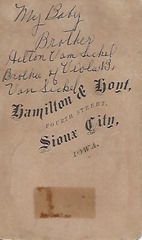 My Baby
Brother
Hilton Van Sickel
Brother of Viola B.
Van Sickel
Hamilton & Hoyt,
FOURTH STREET,
Sioux City,
IOWA.